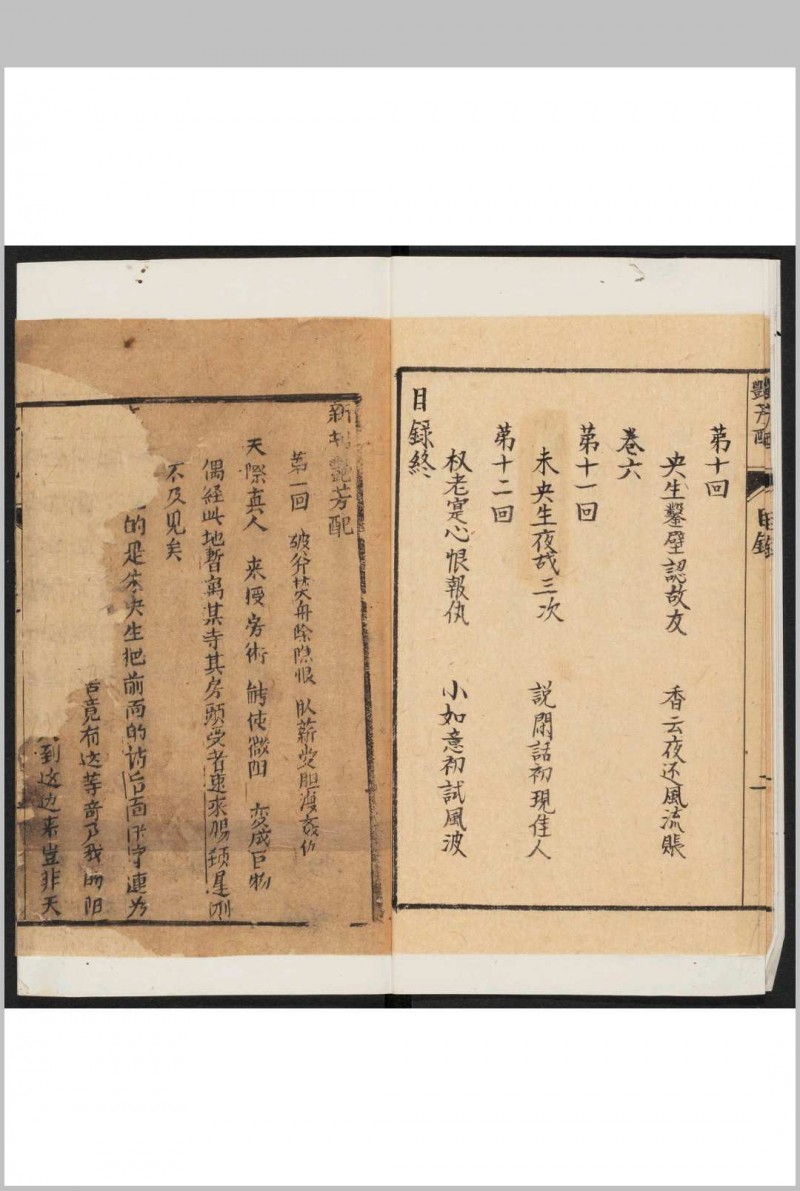 艷芳配
目錄
二
第十回
央生鑿壁認故友　香云夜还風流賬
卷六
第十一回
未央生夜战三次　説閑話初現佳人
第十二回
权老寔心恨報仇　小如意初試風波
目錄終
新 艷芳配
第一回　破斧焚舟除隐恨　臥薪嘗胆復奸仇
天際真人　来授房術　能使微阳　变成巨物
偶經此地暫寓某寺其房頭受者速来賜頭遲則
不及见矣
的是 未央生把前面的 后面 字連
竟有这等奇 我的阳
到这边来豈非天